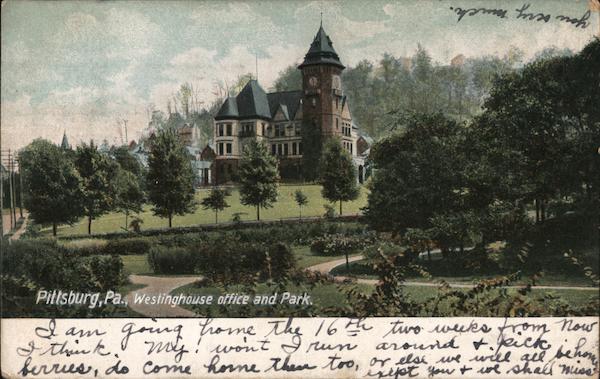 you very much.
Pittsburg, Pa., Westinghouse office and Park.
I am going home the 16th two weeks from now
I think. My! won't I run around & kick
berries, do come home then too, or else we will all be home
exept you & we shall miss